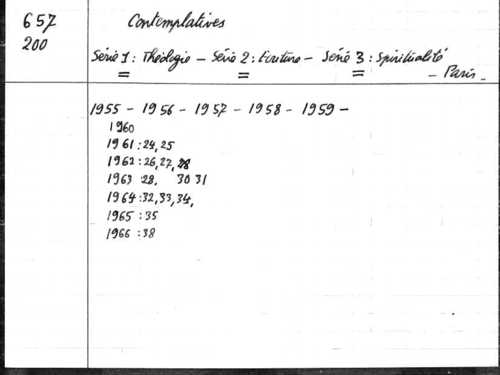 657
200
Contemplatives
Série 1 : Théologie – Série 2 : Ecriture – Série 3 : Spiritualité
– Paris –
1955 – 1956 – 1957 – 1958 – 1959 –
1960
1961 : 24, 25
1962 : 26, 27, 28
1963 : 28, 30 31
1964 : 32, 33, 34,
1965 : 35
1966 : 38